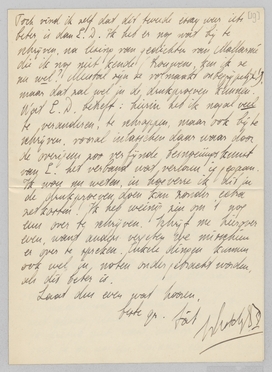 Toch vind ik zelf dat die tweede essay veel iets
beter is dan L.D. Ik heb er nog wat bij te
schrijven, na lezing van gedichten van Mallarmé
die ik nog niet kende! Trouwens, ken ik ze
nu wel! Meestal zijn ze volmaakt onbegrijpelijk,
maar dat zal wel in de drukproeven kunnen.
Wat L.D. betreft: hierin heb ik nogal veel
te veranderen, te schrappen, maar ook bij te
schrijven, vooral inlasschen daar waar door
de
van L: het verband wat verloren is gegaan.
Ik zou nu weten, in hoeverre ik dit in
de drukproeven doen kan zonder extra
onkosten! Ik heb weinig zin om 't nog
eens over te schrijven! Schrijf me hierover
even, want anders vergeten we misschien
er over te spreken. Enkele dingen kunnen
ook wel in noten onder gebracht worden,
als dit beter is.
Laat dus even wat hooren.
beste gr.